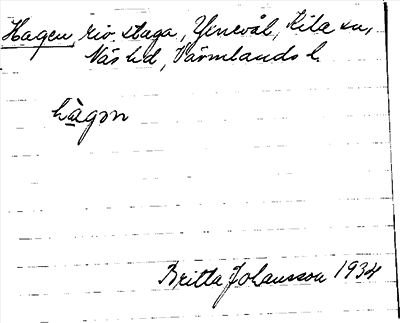 Hagen, riv. stuga, Ginevål, Kila sn,
Näs hd, Värmlands l.
hàgɷn
Britta Johansson 1934